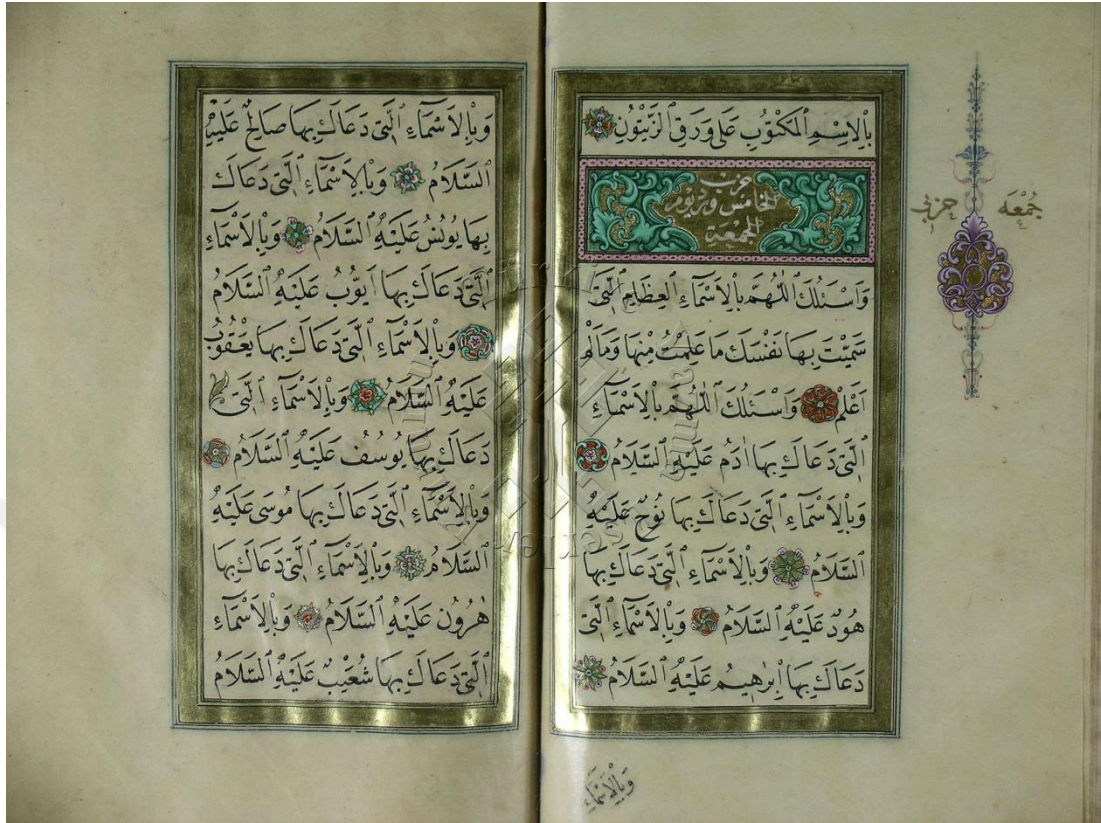 بِالْاِسْمِ الْمَكْتُوبِ عَلٰى وَرَقِ الزَّيْتُونِ
حزب
الخامس فى يوم
الجمعة
وَاَسْئَلُكَ اللّٰهُمَّ بِالْاَسْمَاءِ الْعِظَامِ الَّتِى
سَمَّيْتَ بِهَا نَفْسَكَ مَا عَلِمْتُ مِنْهَا وَمَالَمْ
اَعْلَمْ وَاَسْئَلُكَ اللّٰهُمَّ بِالْاَسْمَاءِ
الَّتِى دَعَاكَ بِهَا اٰدَمُ عَلَيْهِ السَّلَامُ
وَبِالْاَسْمَاءِ الَّتِى دَعَاكَ بِهَا نُوحٌ عَلَيْهِ
السَّلَامُ وَبِالْاَسْمَاءِ الَّتِى دَعَاكَ بِهَا
هُودٌ عَلَيْهِ السَّلَامُ وَبِالْاَسْمَاءِ الَّتِى
دَعَاكَ بِهَا اِبْرٰهِيمُ عَلَيْهِ السَّلَامُ
وَبِالْاَسْمَاءِ
جُمْعَه حزبى
وَبِالْاَسْمَاءِ الَّتِى دَعَاكَ بِهَا صَالِحٌ عَلَيْهِ
السَّلَامُ وَبِالْاَسْمَاءِ الَّتِى دَعَاكَ
بِهَا يُونُسُ عَلَيْهِ السَّلَامُ وَبِالْاَسْمَاءِ
الَّتِى دَعَاكَ بِهَا اَيُّوبُ عَلَيْهِ السَّلَامُ
وَبِالْاَسْمَاءِ الَّتِى دَعَاكَ بِهَا يَعْقُوبُ
عَلَيْهِ السَّلَامُ وَبِالْاَسْمَاءِ الَّتِى
دَعَاكَ بِهَا يُوسُفُ عَلَيْهِ السَّلَامُ
وَبِالْاَسْمَاءِ الَّتِى دَعَاكَ بِهَا مُوسٰى عَلَيْهِ
السَّلَامُ وَبِالْاَسْمَاءِ الَّتِى دَعَاكَ بِهَا
هٰرُونَ عَلَيْهِ السَّلَامُ وَبِالْاَسْمَاءِ
الَّتِى دَعَاكَ بِهَا شُعَيْبٌ عَلَيْهِ السَّلَامُ